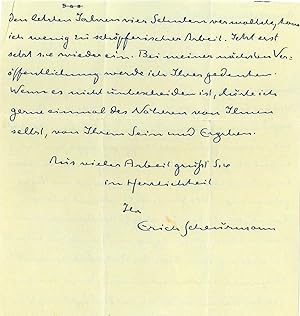 den letzten Jahren vier Schulen verwaltete, kam
ich wenig zu schöpferischer Arbeit. Jetzt erst
setzt sie wieder ein. Bei meiner nächsten Ver-
öffentlichung werde ich Ihrer gedenken.
Wenn es nicht unbescheiden ist, hörte ich
gerne einmal des Näheren von Ihnen
selbst, von Ihrem Sein und Ergehen.
Aus vieler Arbeit grüßt Sie
in Herzlichkeit
Ihr
Erich Scheurmann